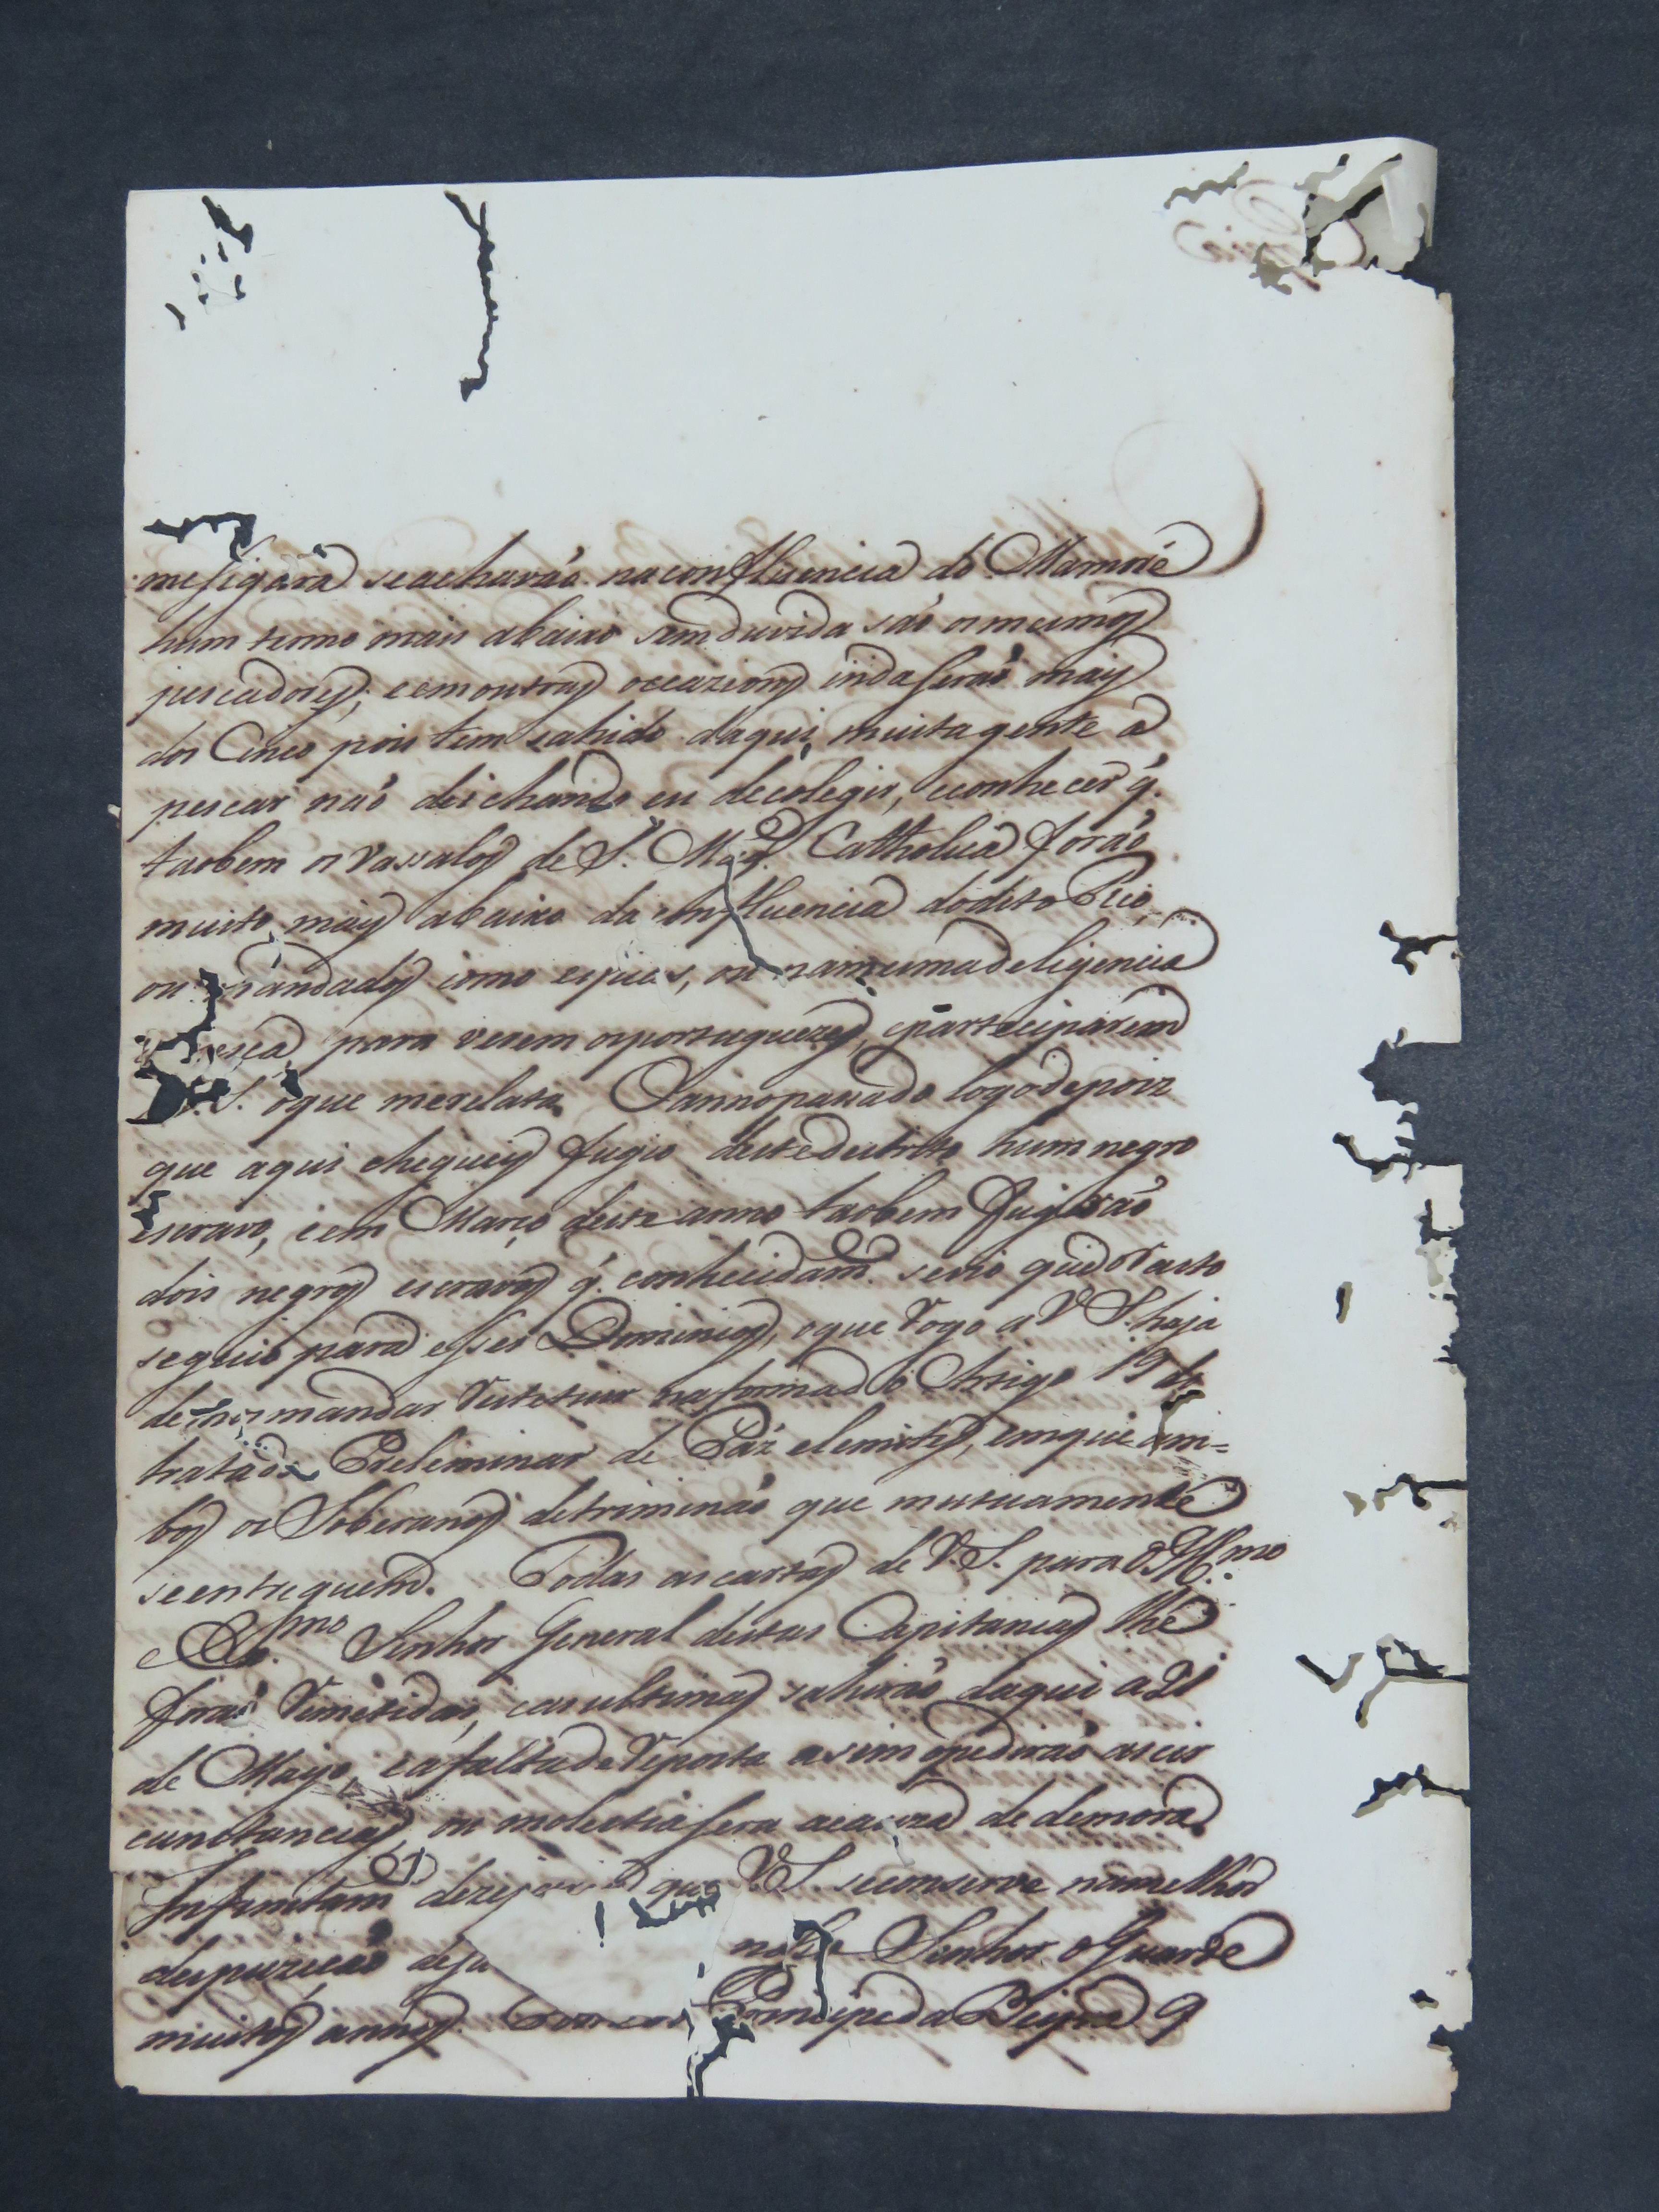 me segura se acharáo na confluencia do Mamoré
hum termo mais abaixo sem duvida sáo os mesmos
pescadores; e em outras occazions inda seráo mais
dos Cinco pois tem sahido daqui muita gente a
pescar náo deichando eu de colegir, e conhecer q.
taobem os Vassalos de S. Mag.e Catholica foráo
muito mais abaixo da confluencia do dito Rio,
ou mandados como espias, ou na mesma deligencia
pesca para verem os portuguezes, e parteciparem
V. S. o que me relata. O anno passado logo depoiz
que aqui cheguei fugio deste destrito hum negro
escravo, e em Março deste anno taobem fugiráo
dois negros escravos q. conhecidam.e se vio que o rasto
seguio para esses Dominios, o que rogo a V S. haja
de mandar restetuir na forma do Artigo 19 do
tratado Preleminar de Páz e lemites, em que am=
bos os Soberanos detrimináo que mutuamente
se entreguem. Todas as cartas de V. S. para o Ill.mo
e Ex.mo Senhor General destas Capitanias lhe
foráo remetidas, e as ultimas sahiráo daqui a 21
de Mayo, e a falta de reposta asim o pediráo as cir
cunstancias, ou molestia sera a cauza de demora.
Infinitam.e dezej que V. S. se conserve na melhor
despuzicáo de sa nosso Senhor o Guarde
muitos annos. Principe da Beira 9